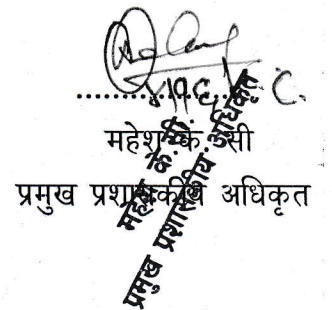 महेश के. सी
प्रमुख प्रशासकीय अधिकृत
महेश के. सी.
प्रमुख प्रशासकीय अधिकृत